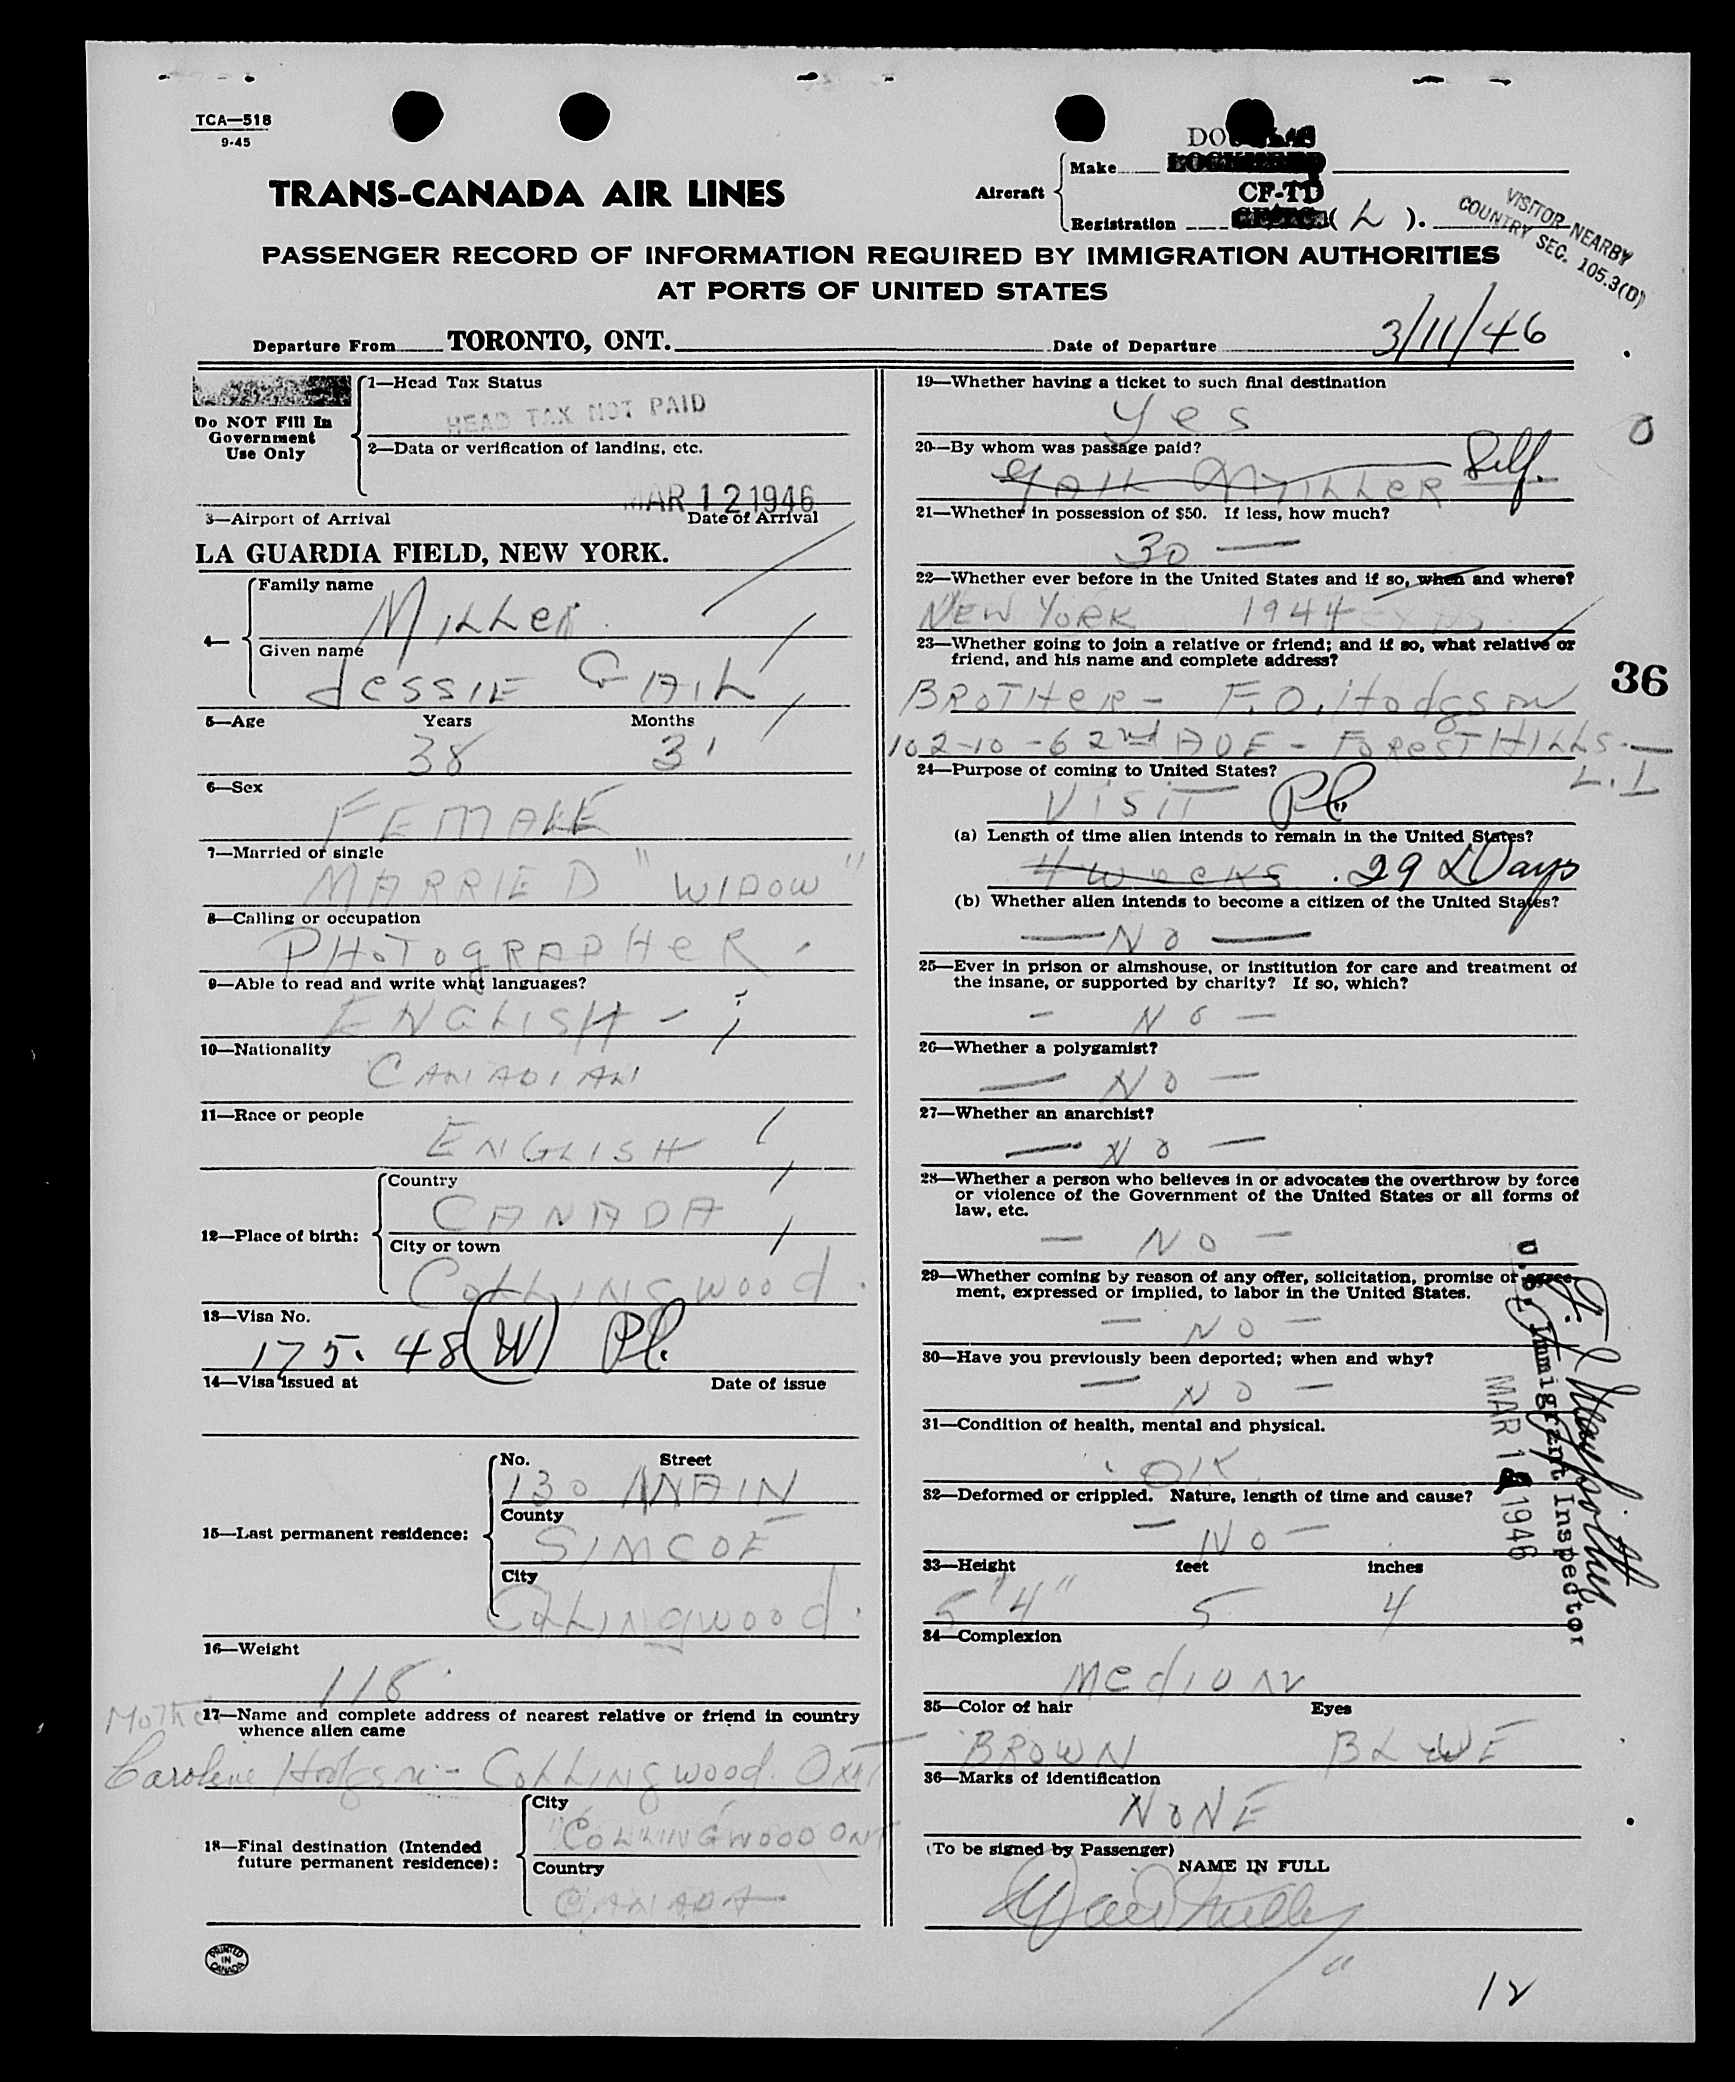 TCA—518
9-45
TRANS-CANADA AIR LINES
Aircraft
Make
DO
Registration
CF-TD
( L ).
VISITOR NEARBY
COUNTRY SEC. 105.3(D)
PASSENGER RECORD OF INFORMATION REQUIRED BY IMMIGRATION AUTHORITIES
AT PORTS OF UNITED STATES
Departure From TORONTO, ONT. Date of Departure 3/11/46
Do NOT Fill In
Government
Use Only
1—Head Tax Status
HEAD TAX NOT PAID
2—Data or verification of landing, etc.
MAR 12 1946
3—Airport of Arrival Date of Arrival
LA GUARDIA FIELD, NEW YORK.
4—
Family name
MILLER
Given name
JESSIE GAIL
5—Age Years Months
38 3
6—Sex
FEMALE
7—Married or single
MARRIED "WIDOW"
8—Calling or occupation
PHOTOGRAPHER
9—Able to read and write what languages?
ENGLISH -
10—Nationality
CANADIAN
11—Race or people
ENGLISH
12—Place of birth:
Country
CANADA
City or town
COLLINGWOOD
13—Visa No.
175.48 (W) Pl.
14—Visa issued at Date of issue
15—Last permanent residence:
No. Street
130
County
SIMCOE
City
COLLINGWOOD
16—Weight
118
Mother
17—Name and complete address of nearest relative or friend in country
whence alien came
Caroline Hodgson - COLLINGWOOD. ONT
18—Final destination (Intended
future permanent residence):
City
COLLINGWOOD ONT
Country
CANADA
PRINTED
IN
CANADA
19—Whether having a ticket to such final destination
Yes
20—By whom was passage paid?
GAIL MILLER Self.
21—Whether in possession of $50. If less, how much?
30 —
22—Whether ever before in the United States and if so, when and where?
NEW YORK 1944
23—Whether going to join a relative or friend; and if so, what relative or
friend, and his name and complete address?
BROTHER - F.O. Hodgson
102-10-62nd AVE - FOREST HILLS -
L.I
24—Purpose of coming to United States?
VISIT Pl.
(a) Length of time alien intends to remain in the United States?
4 weeks . 29 Days
(b) Whether alien intends to become a citizen of the United States?
— NO —
25—Ever in prison or almshouse, or institution for care and treatment of
the insane, or supported by charity? If so, which?
- NO -
26—Whether a polygamist?
— NO —
27—Whether an anarchist?
— NO —
28—Whether a person who believes in or advocates the overthrow by force
or violence of the Government of the United States or all forms of
law, etc.
— NO —
29—Whether coming by reason of any offer, solicitation, promise or agree-
ment, expressed or implied, to labor in the United States.
— NO —
30—Have you previously been deported; when and why?
— NO —
31—Condition of health, mental and physical.
OK
32—Deformed or crippled. Nature, length of time and cause?
— NO —
33—Height feet inches
5'4" 5 4
34—Complexion
MEDIUM
35—Color of hair Eyes
BROWN BLUE
36—Marks of identification
NONE
(To be signed by Passenger)
NAME IN FULL
Gail Miller
36
0
U.S. Immigrant Inspector
MAR 1 1946
12